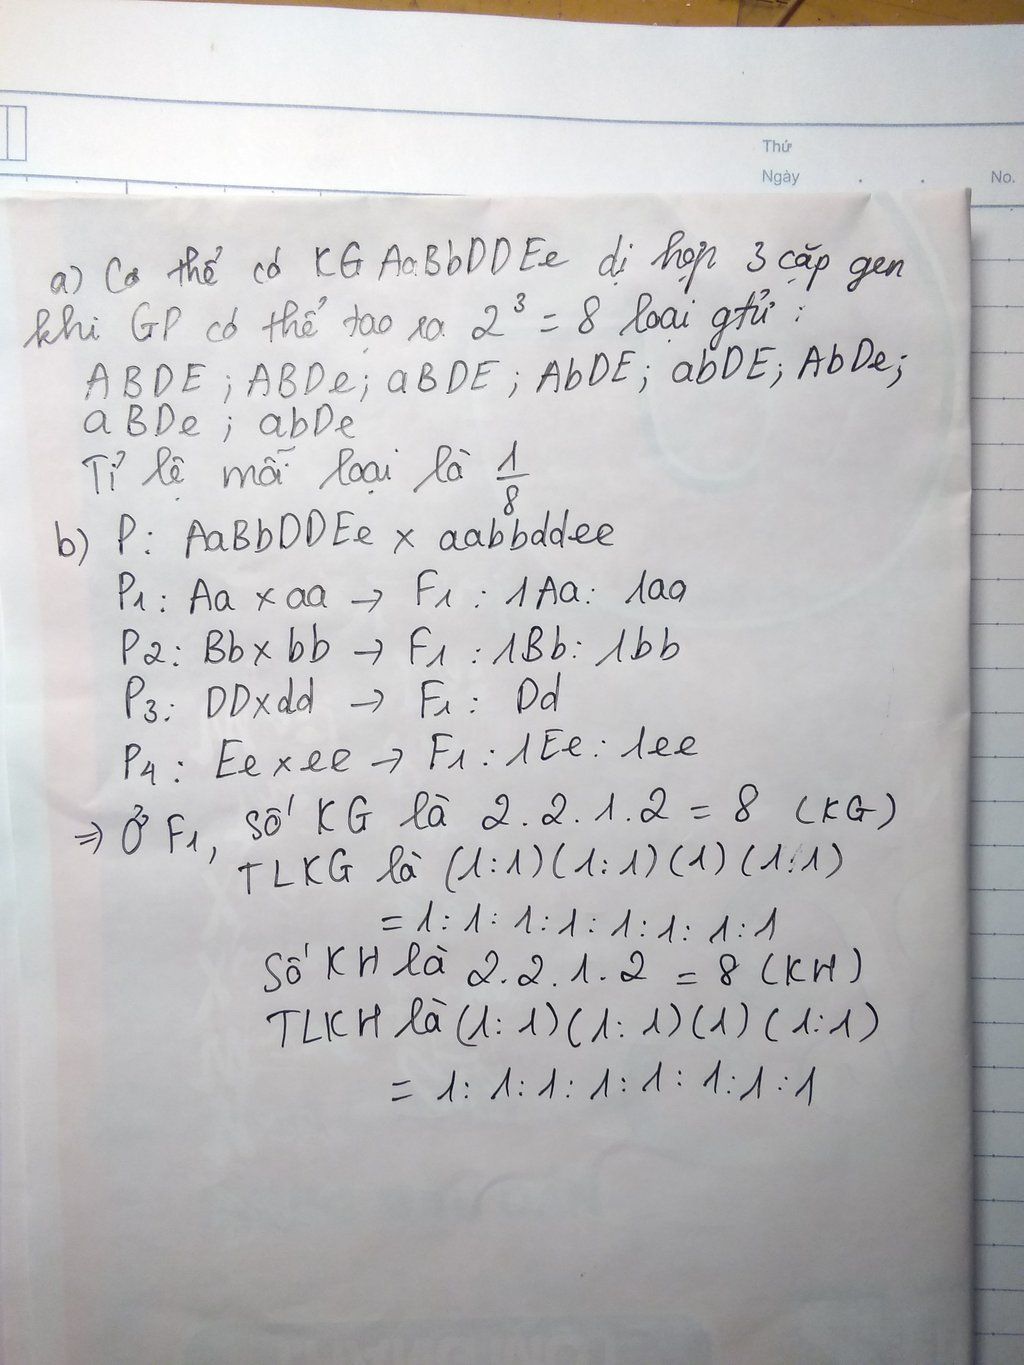 Thứ
Ngày . . No.
a) Cơ thể có KG AaBbDDEe dị hợp 3 cặp gen
khi GP có thể tạo ra 2³ = 8 loại gtử :
ABDE ; ABDe; aBDE ; AbDE; abDE; AbDe;
aBDe ; abDe
Tỉ lệ mỗi loại là 1/8
b) P: AaBbDDEe x aabbddee
P1: Aa x aa → F1 : 1Aa: 1aa
P2: Bb x bb → F1 : 1Bb: 1bb
P3: DDxdd → F1: Dd
P4: Ee x ee → F1: 1Ee: 1ee
⇒ Ở F1, Số KG là 2.2.1.2 = 8 (KG)
TLKG là (1:1)(1:1)(1)(1:1)
= 1:1:1:1:1:1:1:1
Số KH là 2.2.1.2 = 8 (KH)
TLKH là (1:1)(1:1)(1)(1:1)
= 1:1:1:1:1:1:1:1